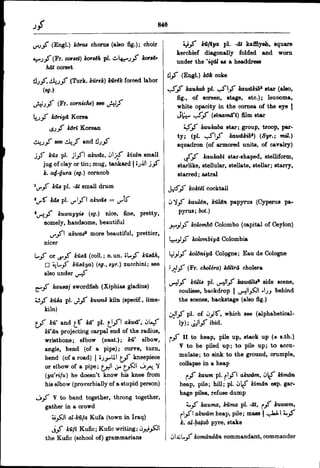 846
كورس (Engl.) kōras chorus (also fig.); choir
كورسيه (Fr. corset) korsēh pl. -āt corset
كورك (Turk. kürek) kürēk forced labor
(eg.)
كورنيش (Fr. corniche) see
كوريا kōriyā Korea
كوري kōrī Korean
see and
كوز kūz pl. اكواز akwāz, كيزان kīzān small
jug of clay or tin; mug, tankard |
k. aḏ-ḏura (eg.) corncob
kūs pl. -āt small drum
kūs pl. اكواس akwās
kuwayyis (eg.) nice, fine, pretty,
comely, handsome, beautiful
akwas more beautiful, prettier,
nicer
كوسا or كوسى kūsā (coll.; n. un. كوساة kūsāh,
kūsāya) (eg., syr.) zucchini; see
also under
kausaj swordfish (Xiphias gladius)
كوشة kūša pl. كوش kuwaš kiln (specif., lime-
kiln)
كوع kū‘ and كاع kā‘ pl. اكواع akwā‘, كيعان
kī‘ān projecting carpal end of the radius,
wristbone; elbow (anat.); kū‘ elbow,
angle, bend (of a pipe); curve, turn,
bend (of a road) | kneepiece
or elbow of a pipe; لا يعرف كوعه من بوعه
(ya‘rifu) he doesn't know his knee from
his elbow (proverbially of a stupid person)
كوف V to band together, throng together,
gather in a crowd
الكوفة al-kūfa Kufa (town in Iraq)
كوفي kūfī Kufic; Kufic writing; الكوفيون
the Kufic (school of) grammarians
كوفية kūfīya pl. -āt kaffiyeh, square
kerchief diagonally folded and worn
under the ‘iqāl as a headdress
كوك (Engl.) kōk coke
كوكب kaukab pl. كواكب kawākib² star (also,
fig., of screen, stage, etc.); leucoma,
white opacity in the cornea of the eye |
(sīnamā'ī) film star
كوكبة kaukaba star; group, troop, par-
ty; (pl. كواكب kawākib²) (Syr.; mil.)
squadron (of armored units, of cavalry)
كوكبي kaukabī star-shaped, stelliform,
starlike, stellular, stellate, stellar; starry,
starred; astral
كوكتيل koktēl cocktail
كولان kaulān, kūlān papyrus (Cyperus pa-
pyrus; bot.)
كولومبو kolombō Colombo (capital of Ceylon)
كولومبيا kolombiyā Colombia
كولونيا kolōniyā Cologne; Eau de Cologne
كوليرا (Fr. choléra) kōlērā cholera
كواليس kūlis pl. كواليس kawālīs² side scene,
coulisse, backdrop | behind
the scenes, backstage (also fig.)
pl. of, which see (alphabetical-
ly); ibid.
كوم II to heap, pile up, stack up (ه s.th.)
V to be piled up; to pile up; to accu-
mulate; to sink to the ground, crumple,
collapse in a heap
كوم kaum pl. اكوام akwām, كيمان kīmān
heap, pile; hill; pl. كيمان kīmān esp. gar-
bage piles, refuse dump
كومة kauma, kūma pl. -āt, كوم kuwam,
اكوام akwām heap, pile; mass |
k. al-ḥaṭab pyre, stake
كوماندان komāndān commandant, commander